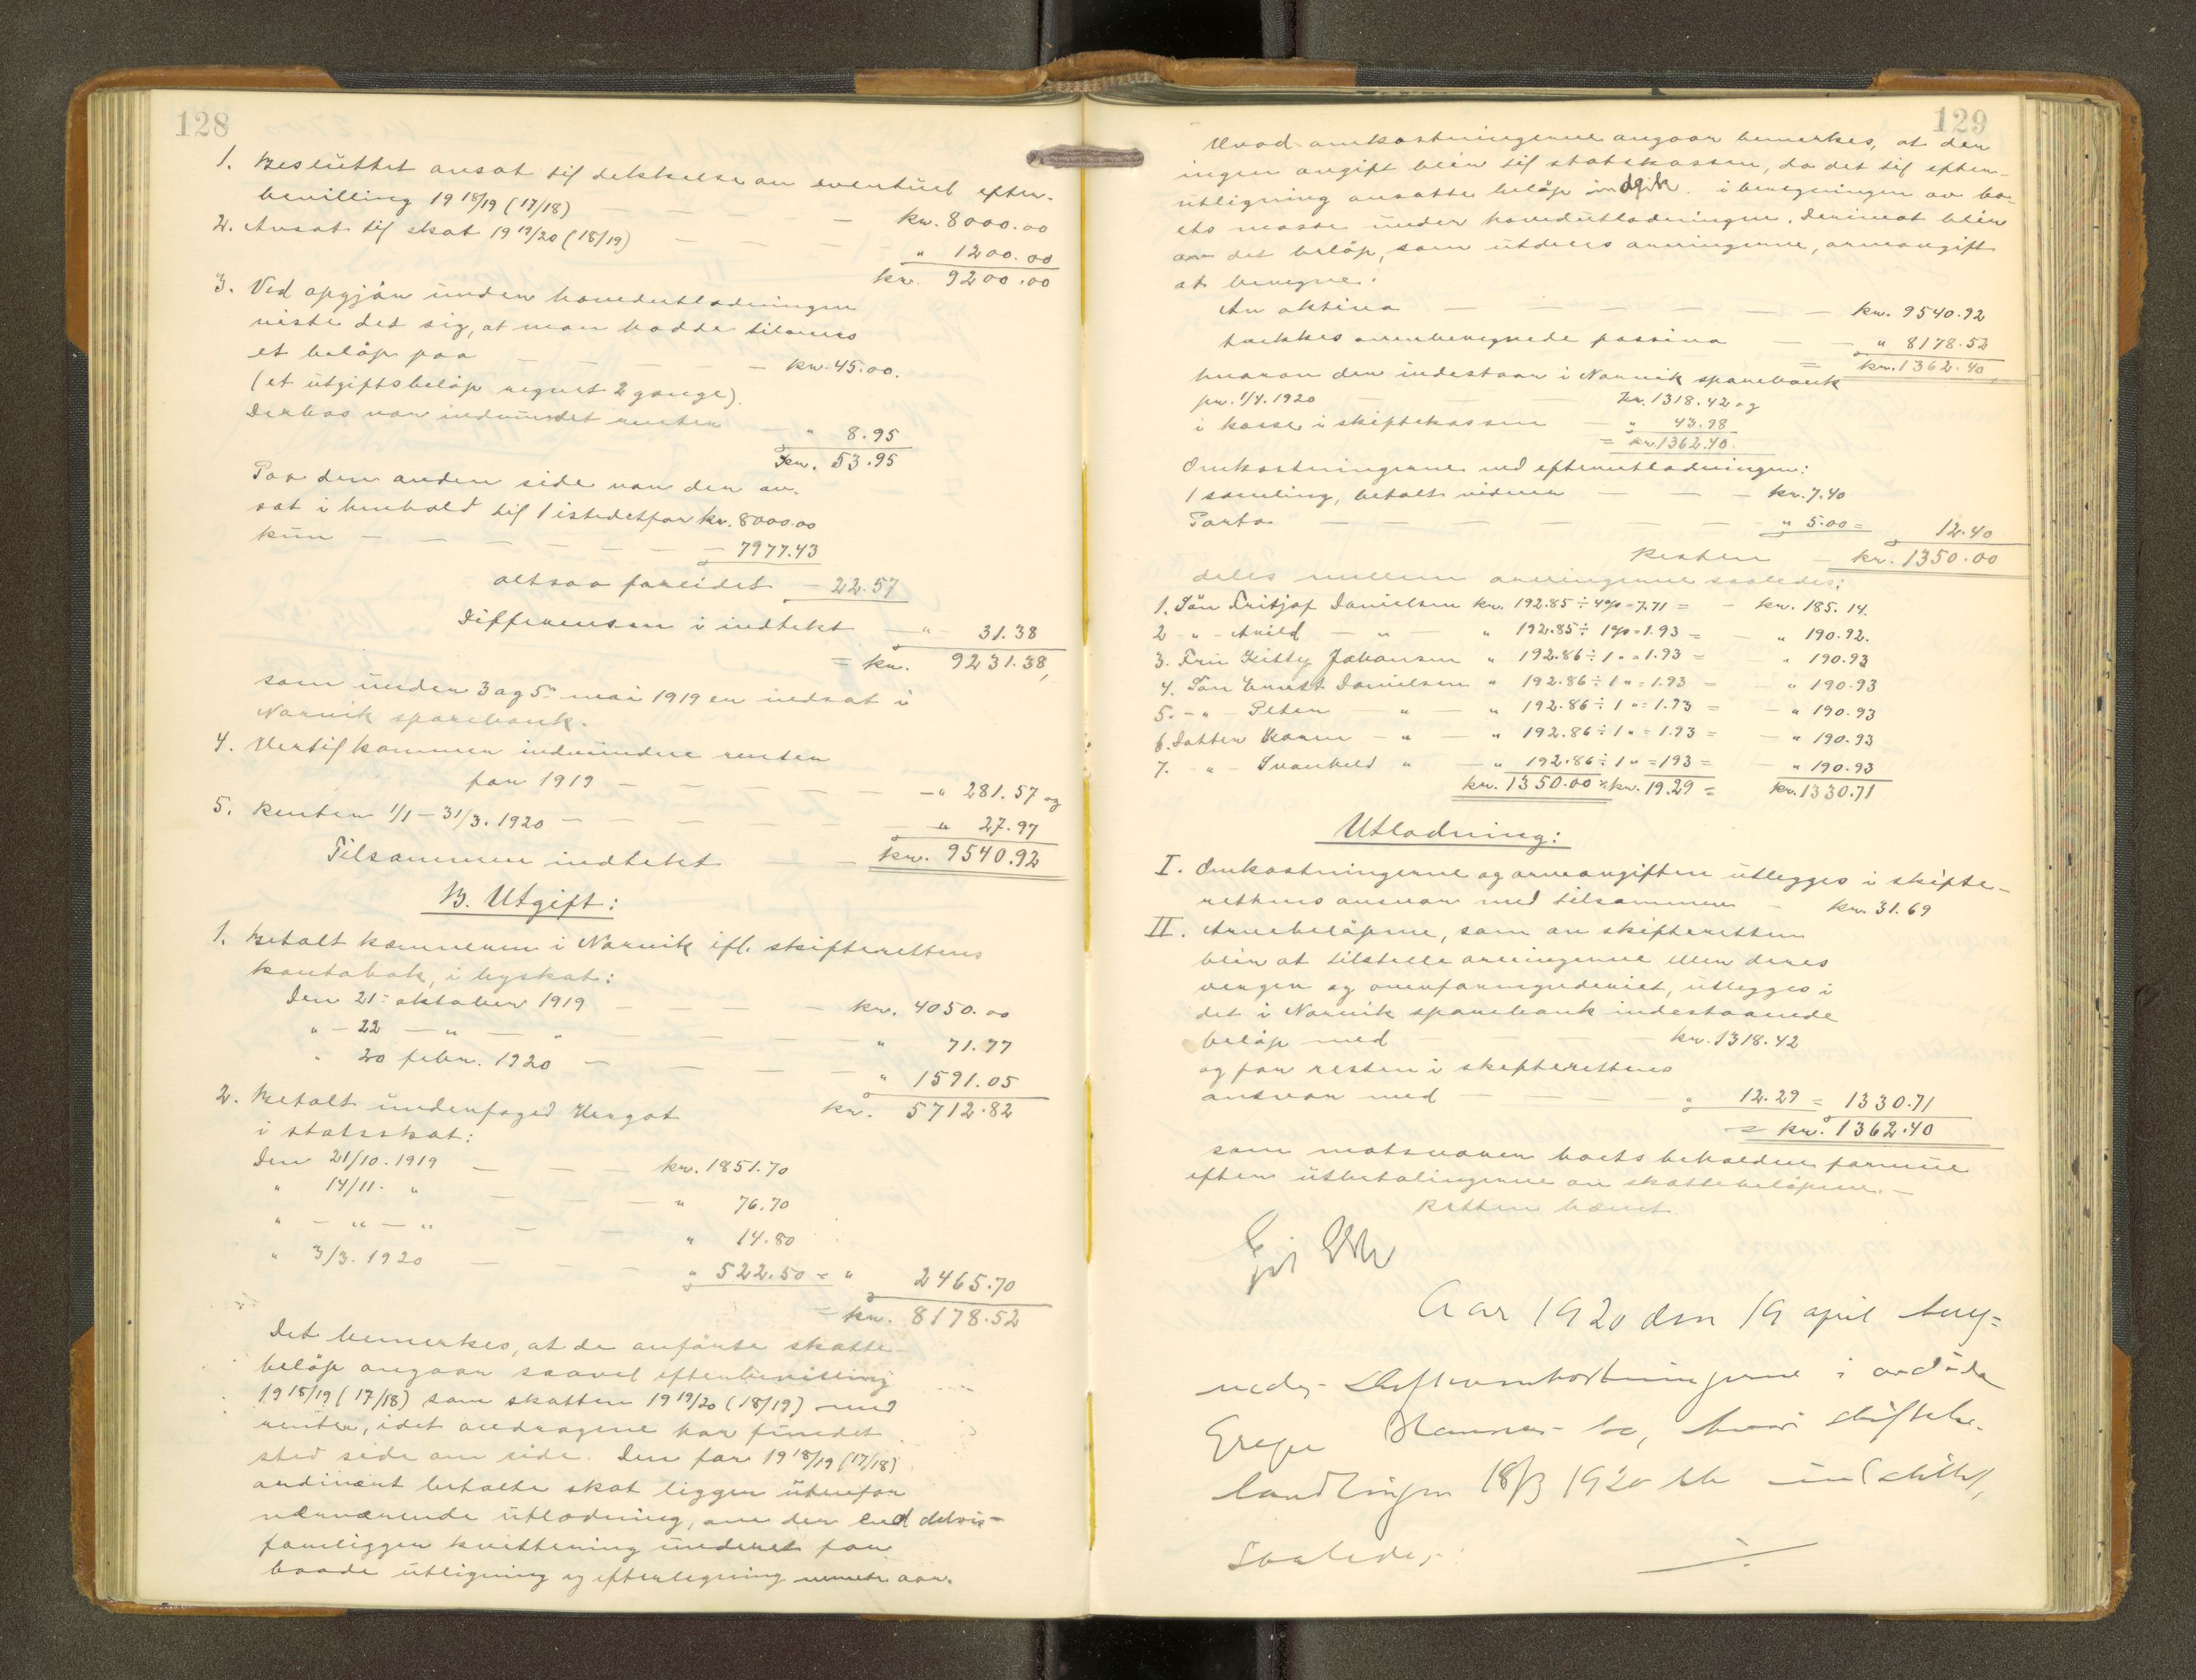 128
1. Besluttet avsat til dekkelse av eventuel efter-
bevilling 19 18/19 (17/18) — — — — kr. 8000.00
2. Avsat til skat 19 19/20 (18/19) — — — " 1200.00
kr. 9200.00
3. Ved opgjör under hovedutlodningen
viste det sig, at man hadde tilovers
et belöp paa — — — — kr. 45.00.
(et utgiftsbelöp regnet 2 gange).
Derhos var indvundet renter — " 8.95
kr. 53.95
Paa den anden side var der av-
sat i henhold til 1 istedetfor kr. 8000.00
kun — — — — — — 7977.43
altsaa forleidet — 22.57
Differensen i indtekt — " — 31.38
= kr. 9231.38,
som under 3 og 5te mai 1919 er indsat i
Narvik sparebank.
4. Hertil kommer indvundne renter
for 1919 — — — — — — " 281.57 og
5. Renter 1/1 — 31/3. 1920 — — — — — " 27.97
Tilsammen indtekt — — kr. 9540.92
B. Utgift:
1. Betalt kæmneren i Narvik ifl. skifterettens
kontobok, i byskat:
Den 21de oktober 1919 — — — — kr. 4050.00
" — 22 — " — " — — — — " 71.77
" 20 febr. 1920 — — — — — " 1591.05
kr. 5712.82
2. Betalt underfoged Hergot
i statsskat:
Den 21/10. 1919 — — — kr. 1851.70
" 14/11. " — — — " 76.70
" — " — " — — " 14.80
" 3/3. 1920 — — — " 522.50 = " 2465.70
= kr. 8178.52
Det bemerkes, at de anförte skatte-
belöp angaar saavel efterbevilling
19 18/19 (17/18) som skatten 19 19/20 (18/19) med
renter, idet andragene har fundet
sted side om side. Den for 19 18/19 (17/18)
ordinært betalte skat ligger utenfor
nærværende utlodning, om der end delvis
foreligger kvittering under et for
baade utligning og efterligning nævnte aar.
129
Hvad omkostningerne angaar bemerkes, at der
ingen avgift blir til statskassen, da det til efter-
utligning avsatte belöp indgik i beregningen av bo-
ets masse under hovedutlodningen. Derimot blir
av det belöp, som utdeles arvingerne, arveavgift
at beregne.
Av aktiva — — — — — — kr. 9540.92
trækkes ovenberegnede passiva — — " 8178.52
= kr. 1362.40,
hvorav der indestaar i Narvik sparebank
pr. 1/4. 1920 — — — kr. 1318.42 og
i kasse i skiftekassen — " 43.98
= kr. 1362.40.
Omkostningerne ved efterutlodningen:
1 samling, betalt vidner — — — kr. 7.40
Porto — — — — — — " 5.00 = 12.40
Resten — kr. 1350.00
deles mellem arvingerne saaledes:
1. Sön Fritjof Danielsen kr. 192.85 ÷ 4% = 7.71 = — kr. 185.14.
2. — " — Arild — " — " 192.85 ÷ 1% = 1.93 = — " 190.92.
3. Fru Kitty Johansen " 192.86 ÷ 1 " = 1.93 = " 190.93
4. Sön Ernst Danielsen " 192.86 ÷ 1 " = 1.93 = — " 190.93
5. — " — Peter — " — " 192.86 ÷ 1 " = 1.93 = — " 190.93
6. Datter Karen — " — " 192.86 ÷ 1 " = 1.93 = — " 190.93
7. — " — Svanhild " — " 192.86 ÷ 1 " = 193 = — " 190.93
kr. 1350.00 ÷ kr. 19.29 = kr. 1330.71
Utlodning:
I. Omkostningerne og arveavgiften utlegges i skifte-
rettens ansvar med tilsammen — kr. 31.69
II. Arvebelöpene, som av skifteretten
blir at tilstille arvingerne eller deres
verger og overformynderiet, utlegges i
det i Narvik sparebank indestaaende
belöp med — — — — kr. 1318.42
og for resten i skifterettens
ansvar med — — — — " 12.29 = 1330.71
= kr. 1362.40
som motsvarer boets beholdne formue
efter utbetalingerne av skattebelöpene. —
Retten hævet.
Aar 1920 den 19 april
i
Hansens bo, hvis skiftebe-
handlingen 18/3 1920 ble
saaledes: